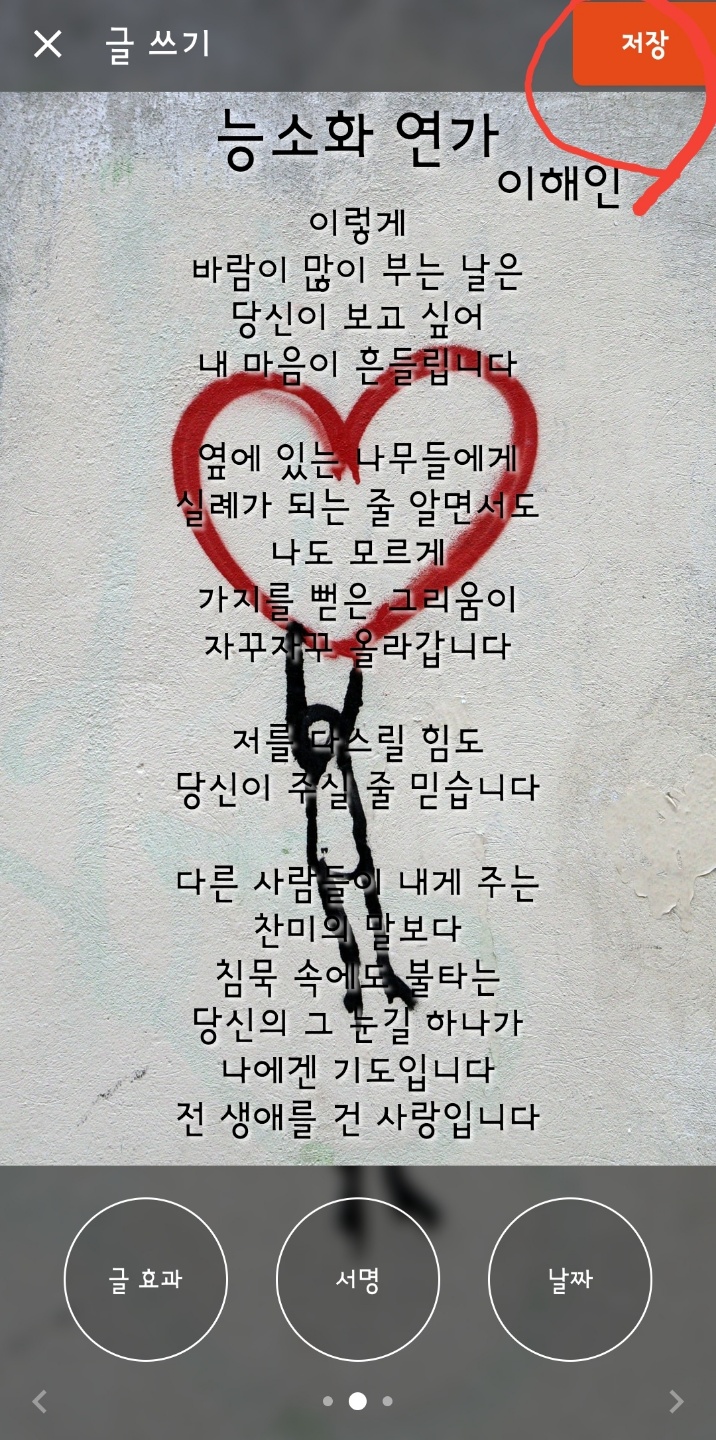 글 쓰기
저장
능소화 연가
이해인
이렇게
바람이 많이 부는 날은
당신이 보고 싶어
내 마음이 흔들립니다
옆에 있는 나무들에게
실례가 되는 줄 알면서도
나도 모르게
가지를 뻗은 그리움이
자꾸자꾸 올라갑니다
저를 다스릴 힘도
당신이 주실 줄 믿습니다
다른 사람들이 내게 주는
찬미의 말보다
침묵 속에도 불타는
당신의 그 눈길 하나가
나에겐 기도입니다
전 생애를 건 사랑입니다
글 효과
서명
날짜